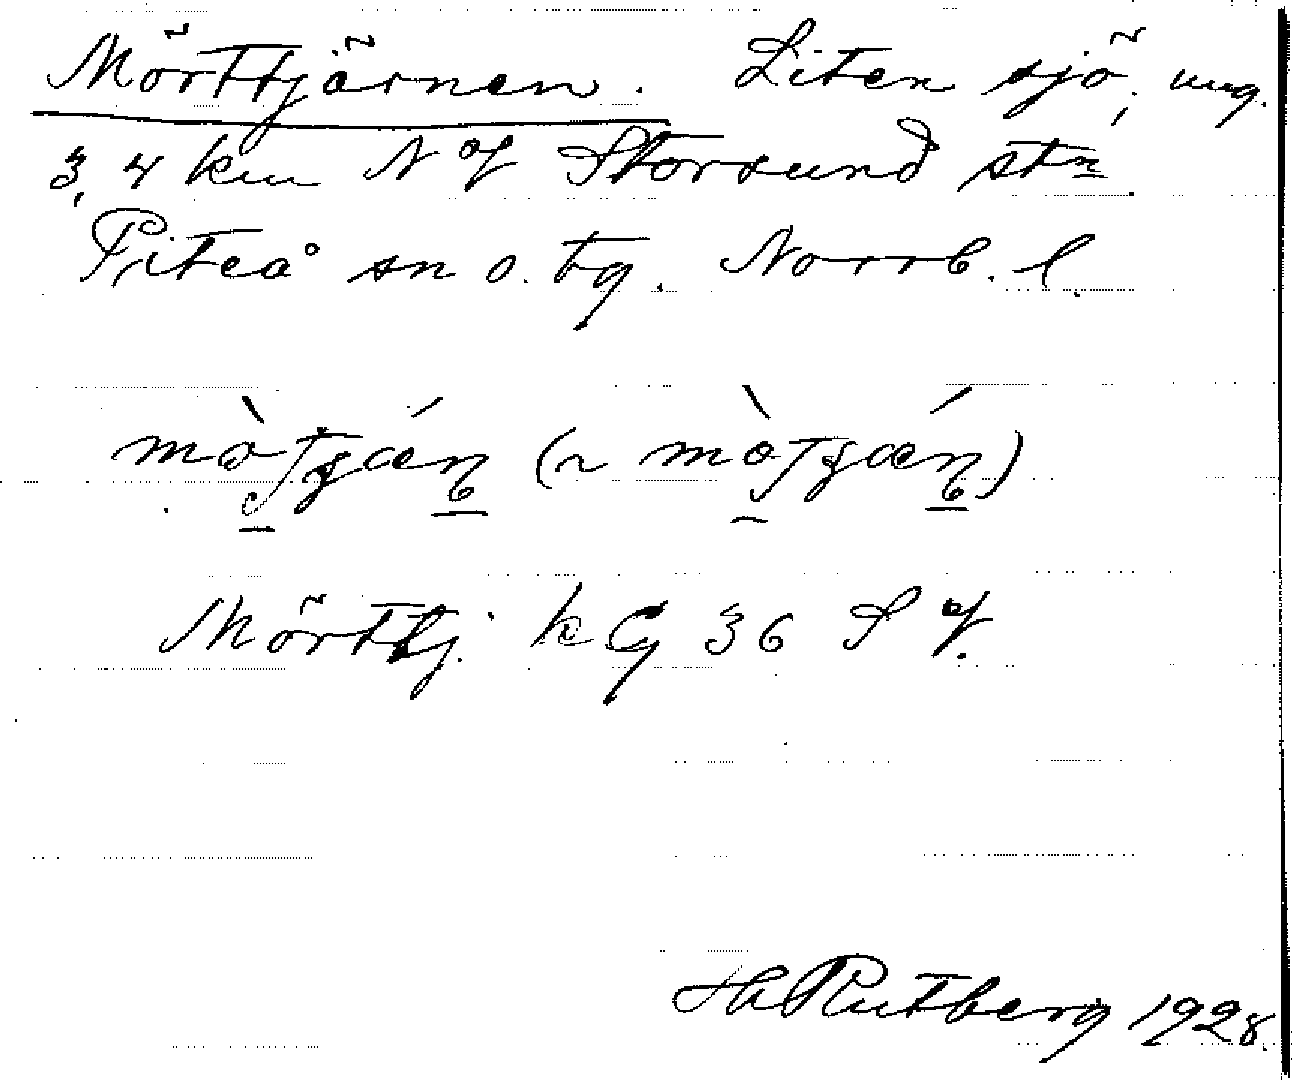 Mörttjärnen. Liten sjö, ung.
3,4 km N of Storsund stn.
Piteå sn o. tg. Norrb. l.
Mörttj. kG 36 S of.
H Rutberg 1928.